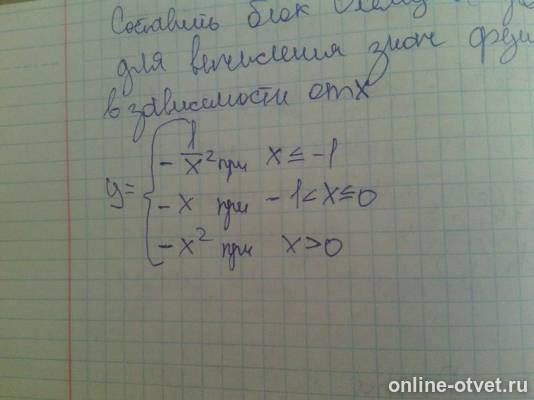 Составить блок схему
для вычисления знач функ
в зависимости от x
y = { - 1/x² при x ≤ -1
- x при - 1 < x ≤ 0
- x² при x > 0
online-otvet.ru